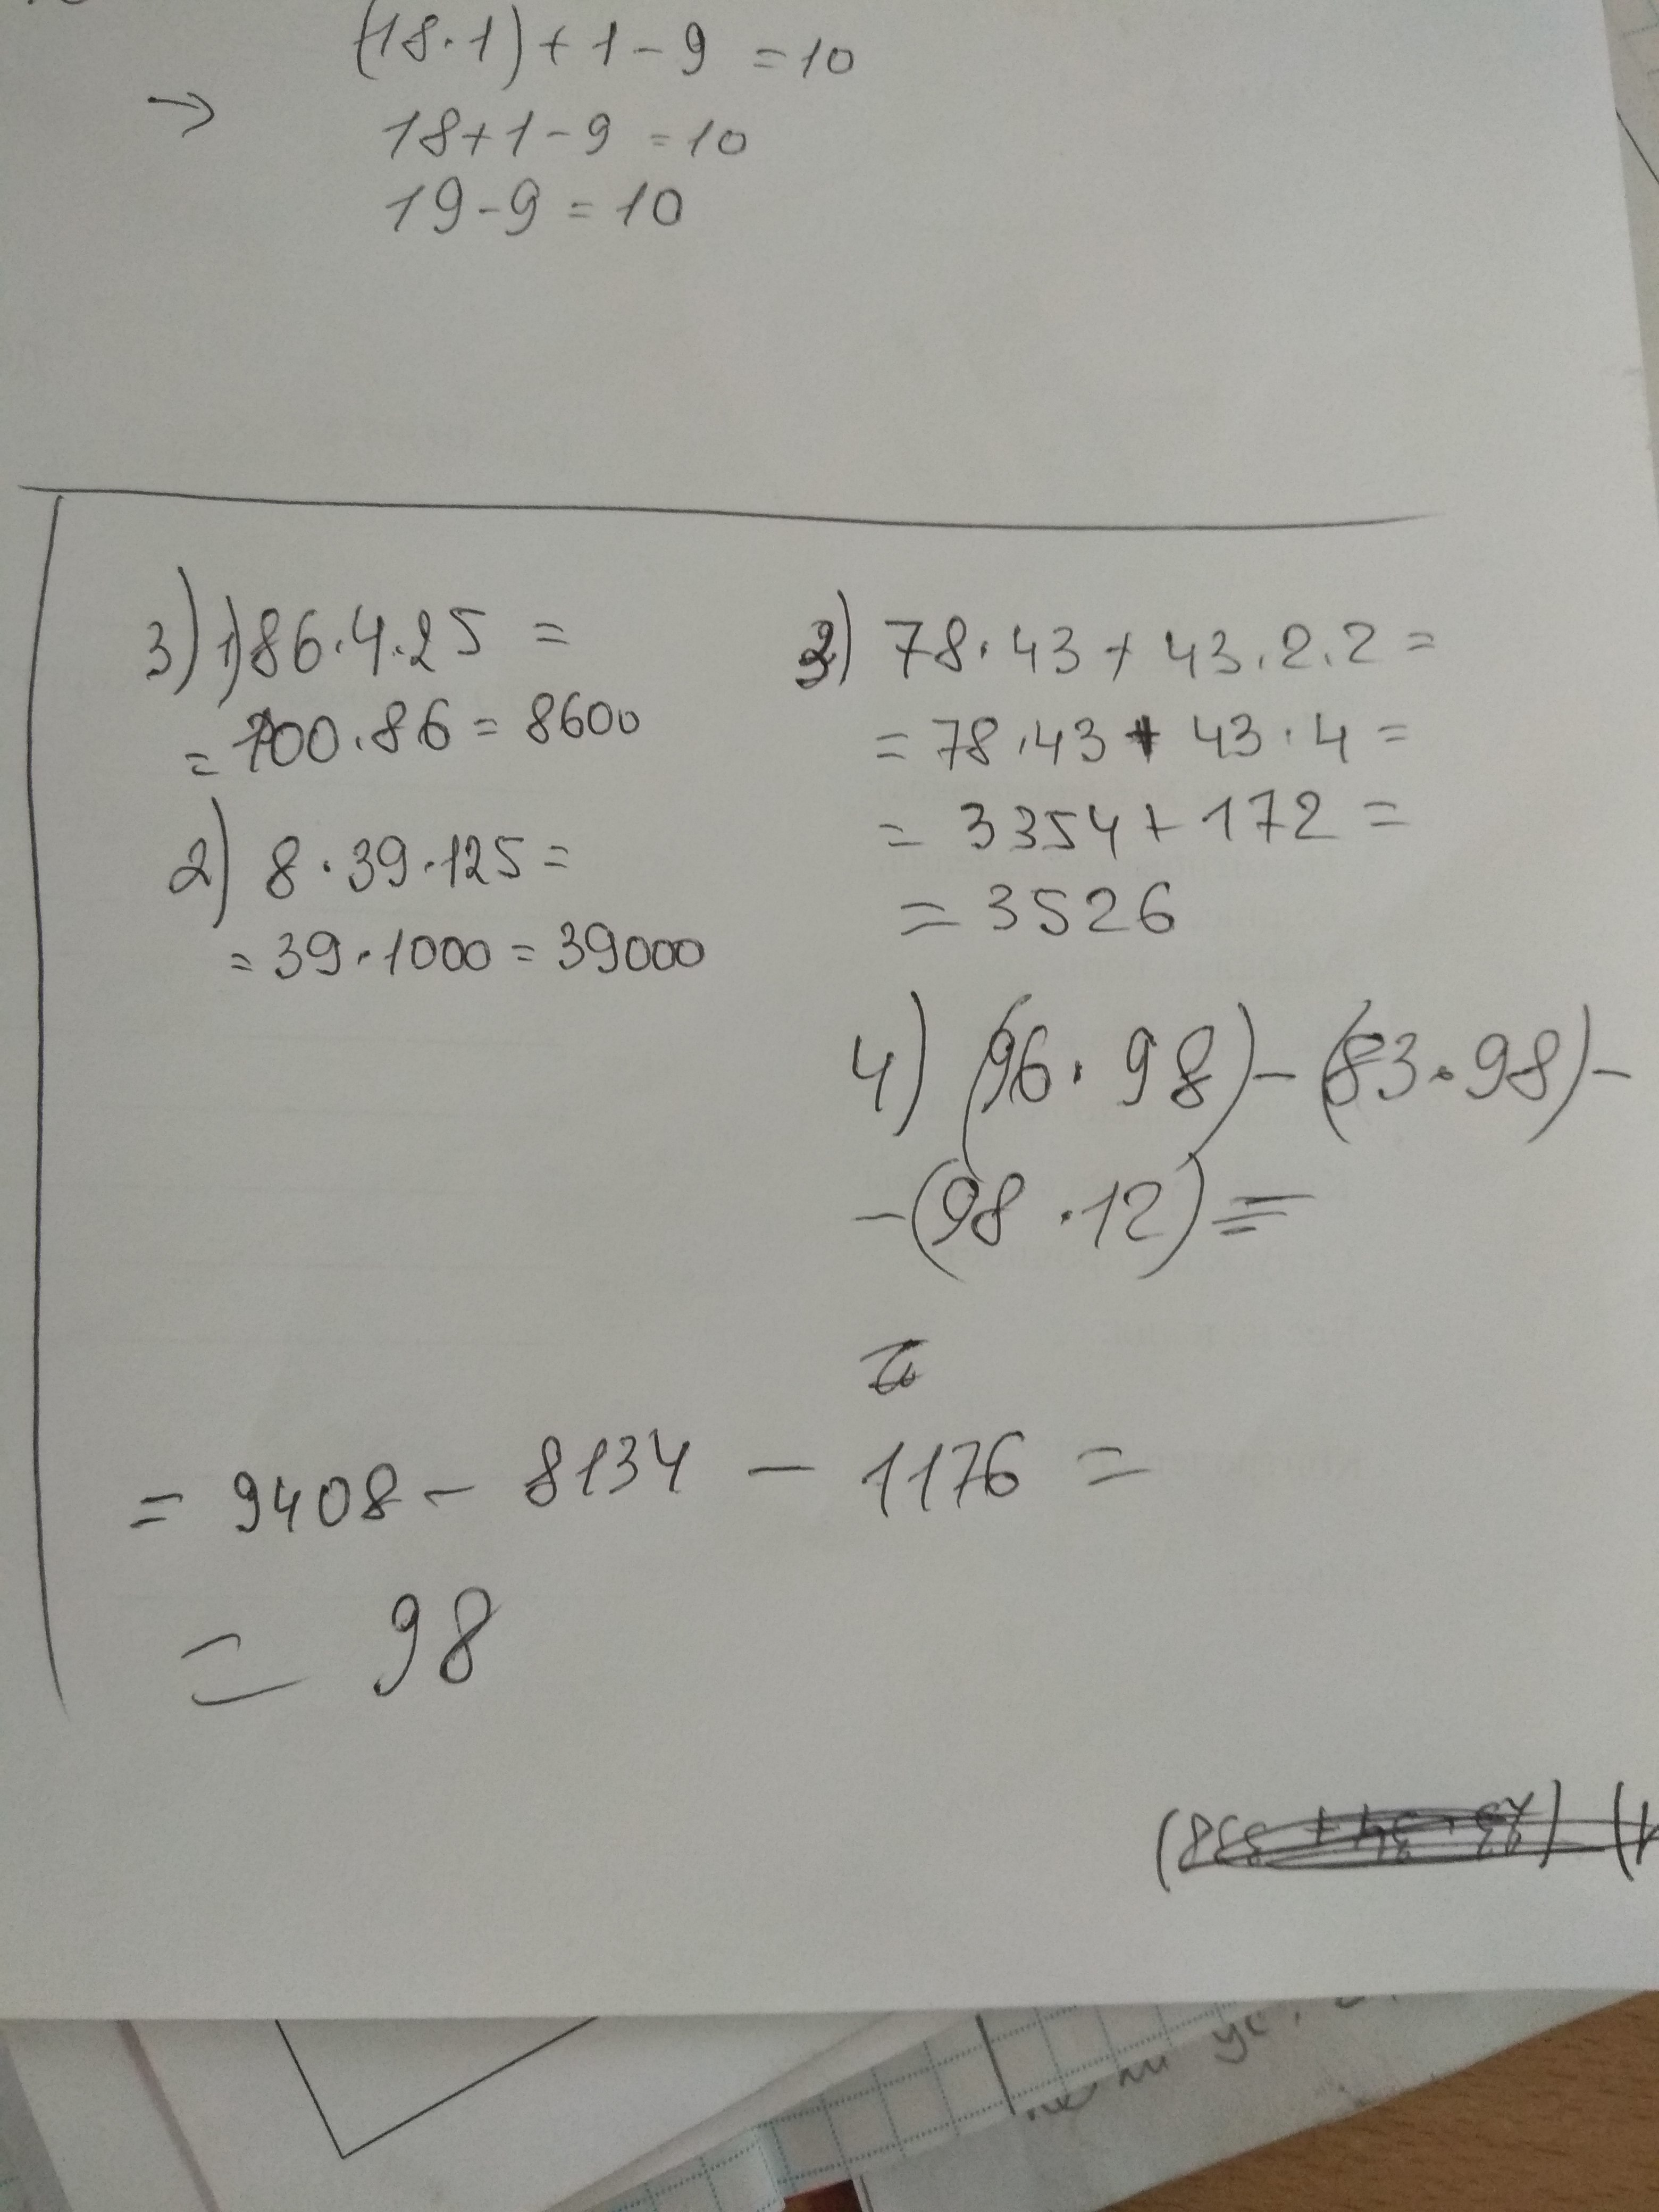 (18·1)+1-9 =10
→ 18+1-9 =10
19-9=10
3) 1) 86·4·25 =
= 100·86 = 8600
2) 8·39·125=
= 39·1000 = 39000
3) 78·43+43·2·2=
= 78·43+43·4=
= 3354+172=
= 3526
4) (96·98)-(83·98)-
-(98·12)=
= 9408 - 8134 - 1176 =
= 98